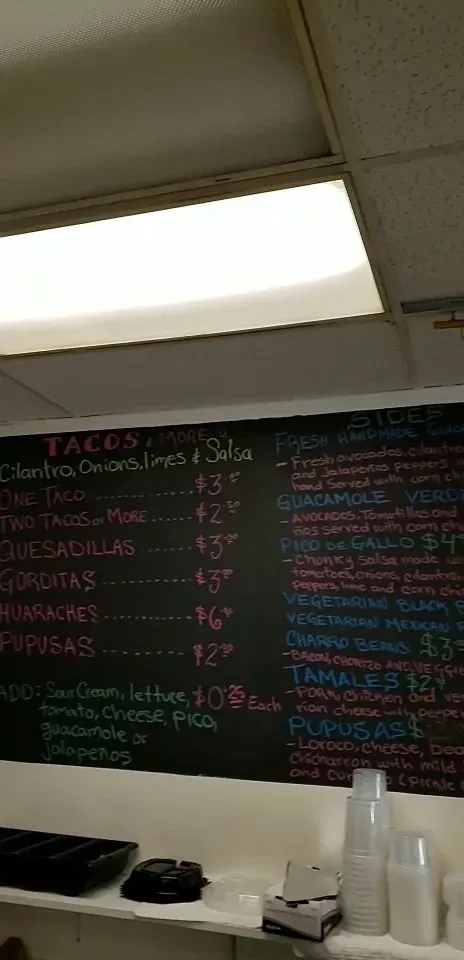 TACOS & MORE
Cilantro, Onions, limes & Salsa
ONE TACO ............ $3
TWO TACOS or MORE .... $2.50
QUESADILLAS ....... $3
GORDITAS ........... $3
HUARACHES ......... $6
PUPUSAS ........... $2
ADD: Sour Cream, lettuce, $0.25 Each
tomato, cheese, pico,
guacamole or
jalapeños
SIDES
FRESH HANDMADE
- Fresh avocados, cilantro
and Jalapeños peppers
hand Served with corn
GUACAMOLE
- AVOCADOS, Tomatillos and
served with corn
PICO DE GALLO $4
- Chonky salsa made
tomatoes, onions, cilantro
peppers, lime and corn
VEGETARIAN BLACK
VEGETARIAN MEXICAN
CHARRO BEANS $3
- BACON, CHORIZO AND
TAMALES $2
- PORK Chicken and
rian cheese
PUPUSAS $
- LOROCO, cheese,
chicharron with mild
and